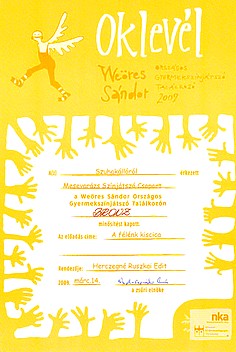 Oklevél
Weöres Sándor
országos
gyermekszínjátszó
találkozó
2009
Szuhakállóról érkezett
Meseverázs Színjátszó Csoport
a Weöres Sándor Országos
Gyermekszínjátszó Találkozón
BRONZ
minősítést kapott
Az előadás címe: A félénk kiscica
Rendezője: Herczegné Ruszkai Edit
2009. márc.14.
a zsűri elnöke
nka